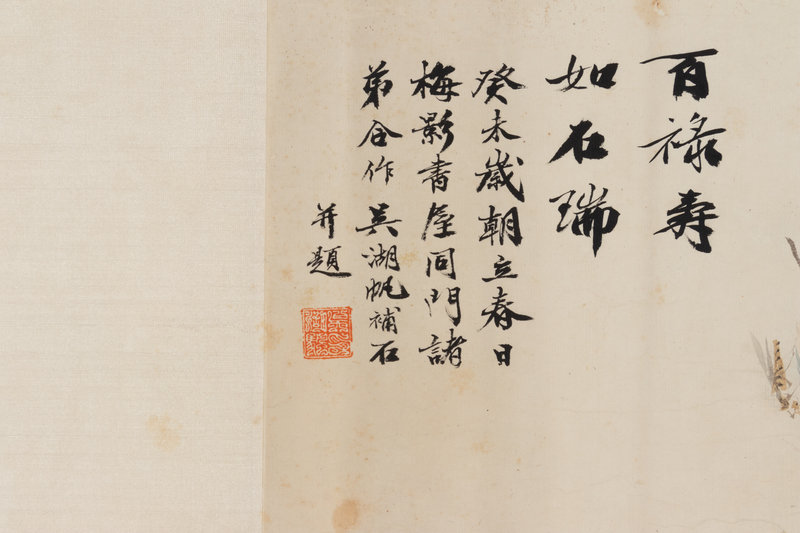 百祿壽
如石瑞
癸未歲朝立春日
梅影書屋同門諸
弟合作吳湖帆補石
并題